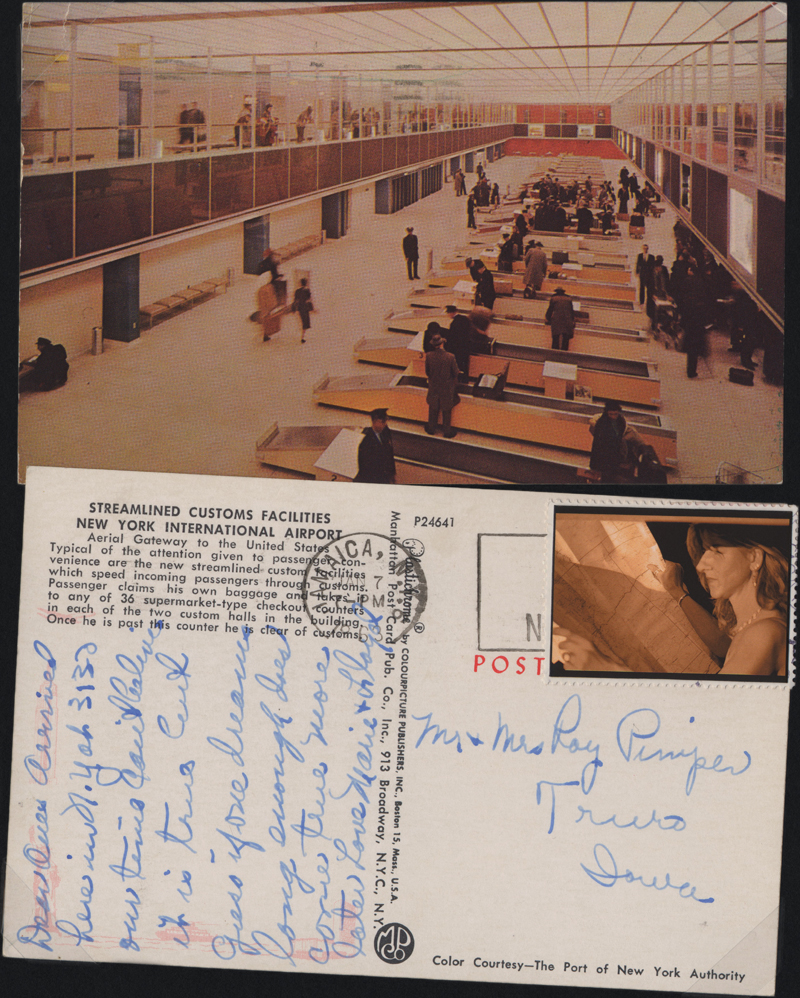 STREAMLINED CUSTOMS FACILITIES
NEW YORK INTERNATIONAL AIRPORT
Aerial Gateway to the United States
Typical of the attention given to passenger con-
venience are the new streamlined custom facilities
which speed incoming passengers through customs.
Passenger claims his own baggage and takes it
to any of 36 supermarket-type checkout counters
in each of the two custom halls in the building.
Once he is past this counter he is clear of customs.
P24641
Plastichrome ® by COLOURPICTURE PUBLISHERS, INC., Boston 15, Mass., U.S.A.
Manhattan Post Card Pub. Co., Inc., 913 Broadway, N.Y.C., N.Y.
JAMAICA, N.Y.
7
PM
N
POST
Dear Ones Arrived
here in N.Y. at 3130
our time Can't believe
it is true but
Guess if one dreams
long enough does
come true more
later Love Marie + Lloyd
Mr + Mrs Roy Pimper
Truro
Iowa
MPC
CO
Color Courtesy—The Port of New York Authority